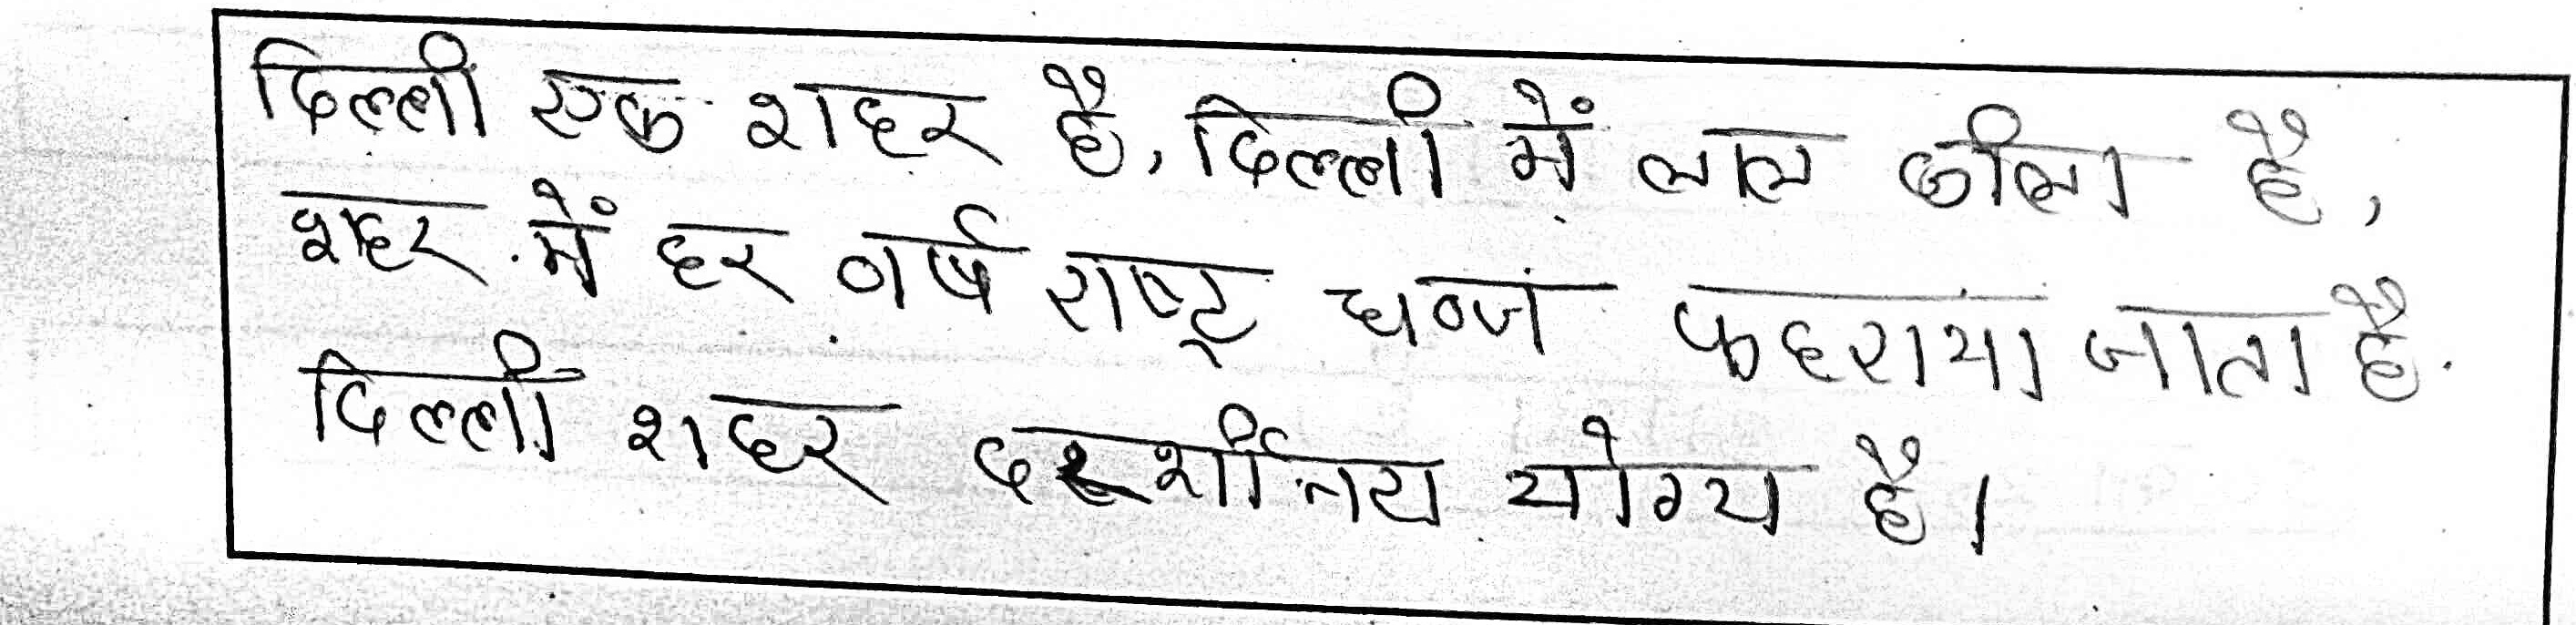 दिल्ली एक शहर है, दिल्ली में लाल कीला है,
शहर में हर वर्ष राष्ट्र धव्ज फहराया जाता है.
दिल्ली शहर दर्शीनय योग्य है।